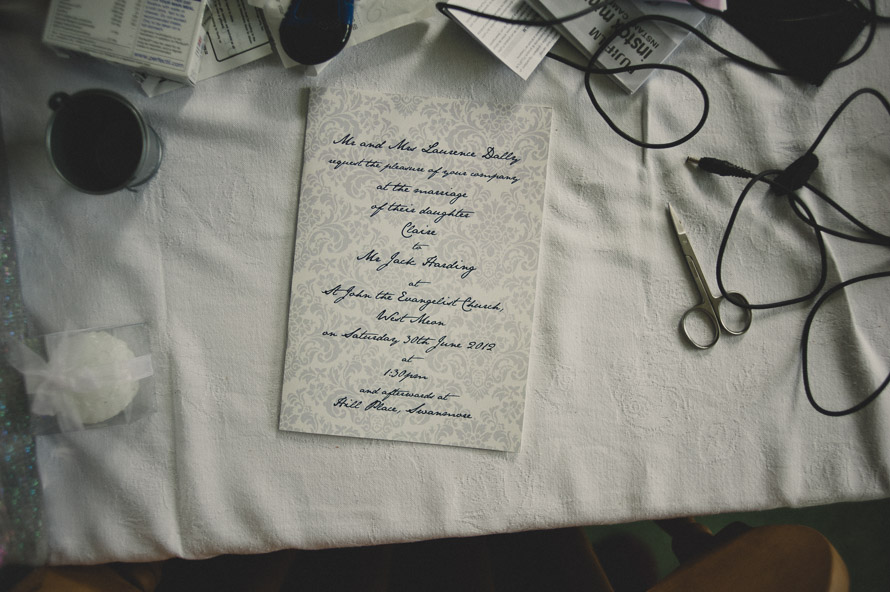 Mr and Mrs Laurence Dalby
request the pleasure of your company
at the marriage
of their daughter
Claire
to
Mr Jack Harding
at
St John the Evangelist Church,
West Meon
on Saturday 30th June 2012
at
1:30pm
and afterwards at
Hill Place, Swanmore
FUJIFILM
insta
INSTA